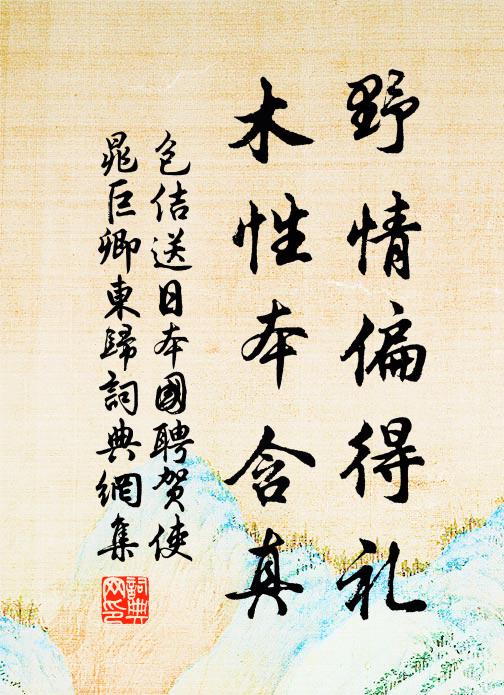 野情偏得礼
木性本含真
包佶送日本國聘贺使
晁巨卿東歸詞典網集
詞典
网印